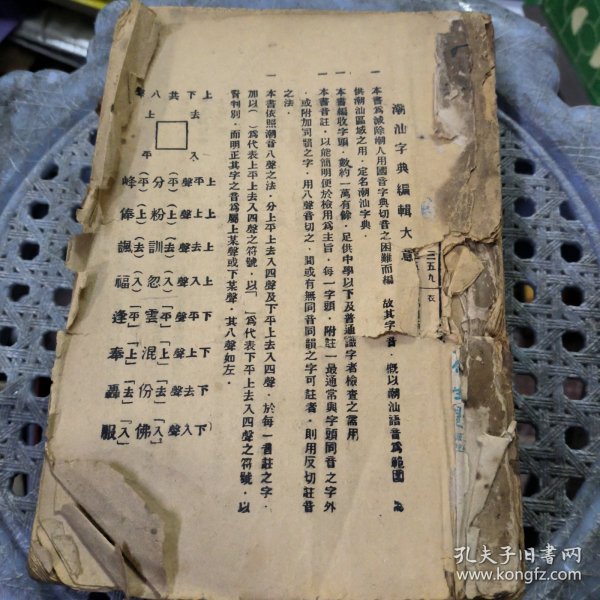 潮汕字典編輯大意
一 本書爲減除潮人用國音字典切音之困難而編 故其字音．概以潮汕語音爲範圍 爲
供潮汕區域之用．定名潮汕字典．
一 本書編收字頭．數約一萬有餘．足供中學以下及普通識字者檢查之需用
一 本書音註．以能簡明便於檢用爲主旨．每一字頭．附註一最通常與字頭同音之字外
．或附加同韻之字．用八聲音切之．間或有無同音同韻之字可註者．則用反切註音
之法．
一 本書依照潮音八聲之法．分上平上去入四聲及下平上去入四聲．於每一音註之字．
加以（）爲代表上平上去入四聲之符號．以「」爲代表下平上去入四聲之符號．以
資判別．而明正其字之音爲屬上某聲或下某聲．其八聲如左．
上下共八聲
上 去
平 入
上平聲（平）分（平）峰
上上聲（上）粉（上）俸
上去聲（去）訓（去）諷
上入聲（入）忽（入）福
下平聲「平」雲「平」逢
下上聲「上」混「上」奉
下去聲「去」份「去」轟
下入聲「入」佛「入」服
三五九
衣
孔夫子旧书网
www.kongfz.com